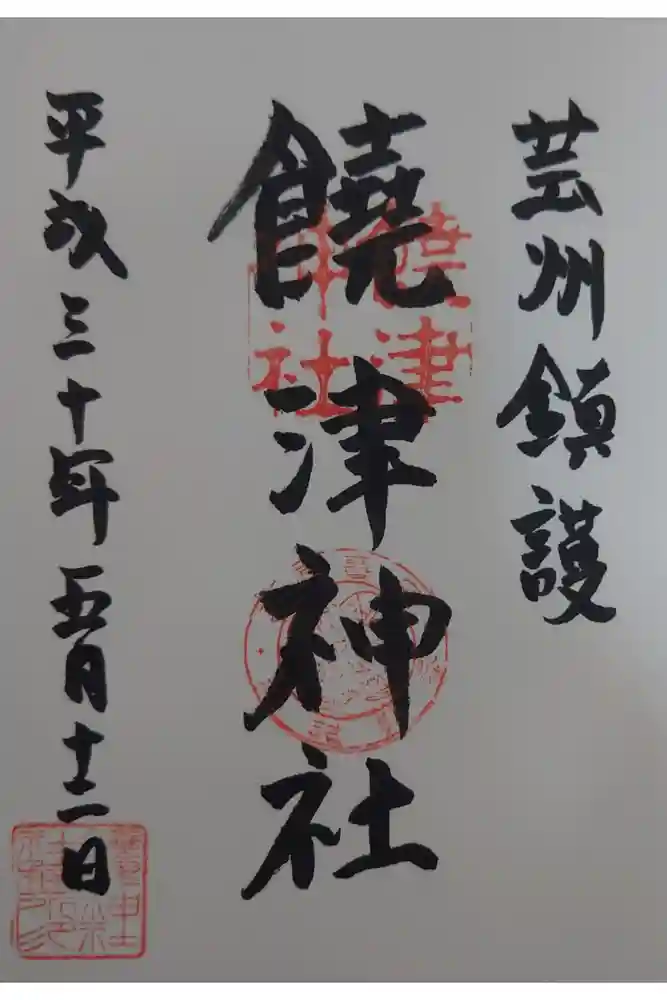 芸州鎮護
饒津神社
平成三十年五月十二日
饒津
神社